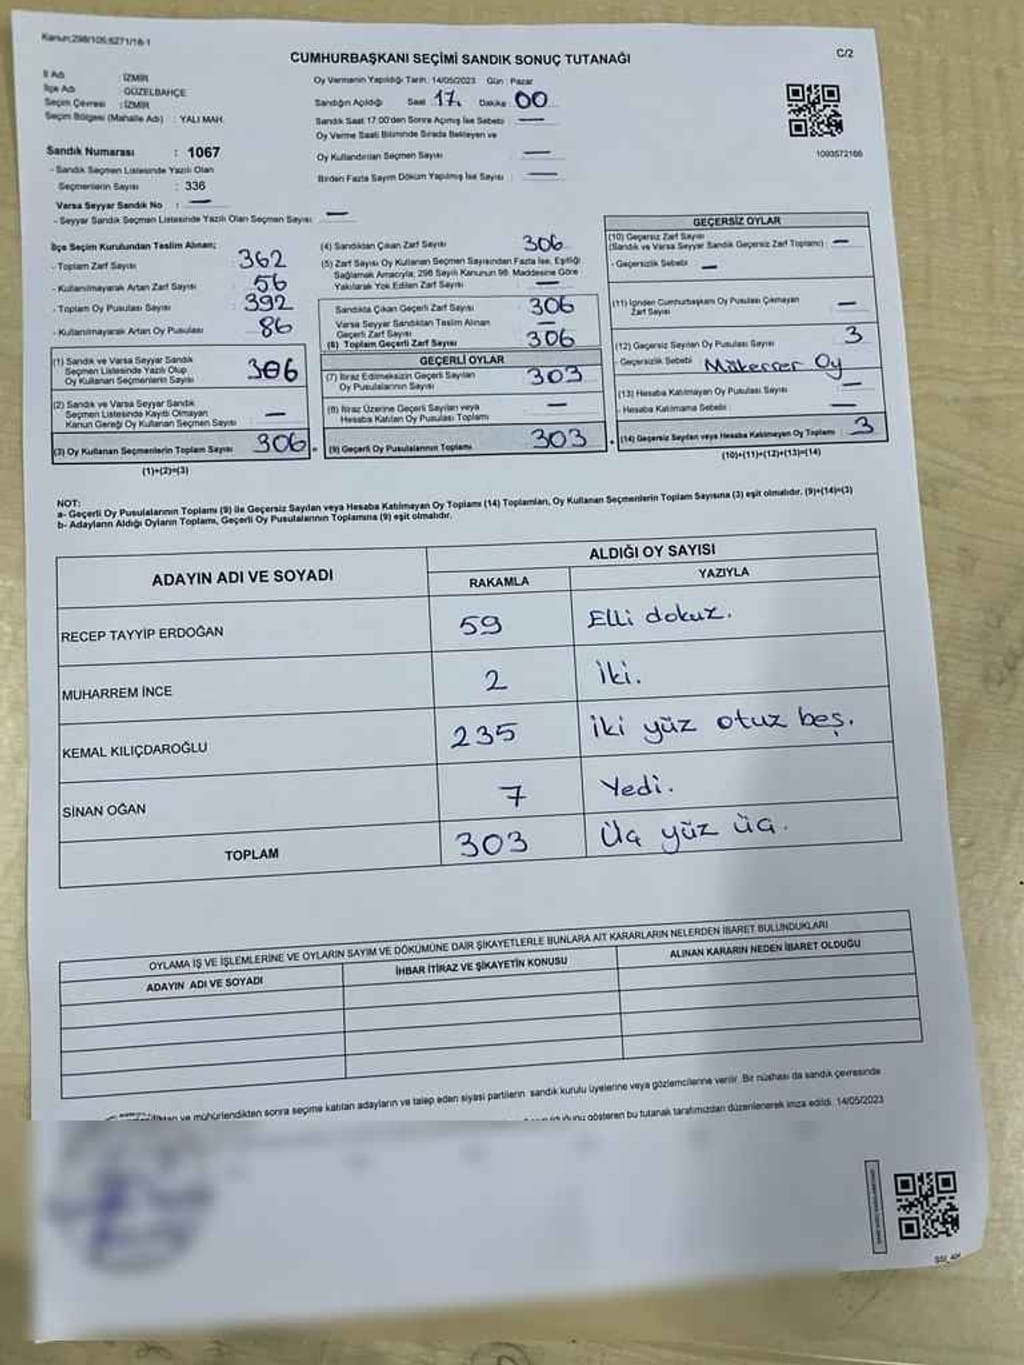 Kanun:298/105;6271/18-1
C/2
CUMHURBAŞKANI SEÇİMİ SANDIK SONUÇ TUTANAĞI
İl Adı : İZMİR
İlçe Adı : GÜZELBAHÇE
Seçim Çevresi : İZMİR
Seçim Bölgesi (Mahalle Adı) : YALI MAH.
Sandık Numarası : 1067
- Sandık Seçmen Listesinde Yazılı Olan
Seçmenlerin Sayısı : 336
Varsa Seyyar Sandık No : —
- Seyyar Sandık Seçmen Listesinde Yazılı Olan Seçmen Sayısı —
Oy Vermenin Yapıldığı Tarih: 14/05/2023 Gün : Pazar
Sandığın Açıldığı Saat 17. Dakika 00
Sandık Saat 17:00'den Sonra Açmış İse Sebebi —
Oy Verme Saati Bitiminde Sırada Bekleyen ve
Oy Kullandırılan Seçmen Sayısı —
Birden Fazla Sayım Döküm Yapılmış İse Sayısı —
1093572166
İlçe Seçim Kurulundan Teslim Alınan;
- Toplam Zarf Sayısı 362
- Kullanılmayarak Artan Zarf Sayısı 56
- Toplam Oy Pusulası Sayısı 392
- Kullanılmayarak Artan Oy Pusulası 86
(1) Sandık ve Varsa Seyyar Sandık
Seçmen Listesinde Yazılı Olup
Oy Kullanan Seçmenlerin Sayısı 306
(2) Sandık ve Varsa Seyyar Sandık
Seçmen Listesinde Kayıtlı Olmayan
Kanun Gereği Oy Kullanan Seçmen Sayısı —
(3) Oy Kullanan Seçmenlerin Toplam Sayısı 306
(1)+(2)=(3)
(4) Sandıktan Çıkan Zarf Sayısı 306
(5) Zarf Sayısı Oy Kullanan Seçmen Sayısından Fazla İse, Eşitliği
Sağlamak Amacıyla, 298 Sayılı Kanunun 98. Maddesine Göre
Yakılarak Yok Edilen Zarf Sayısı —
Sandıkta Çıkan Geçerli Zarf Sayısı 306
Varsa Seyyar Sandıktan Teslim Alınan
Geçerli Zarf Sayısı —
(6) Toplam Geçerli Zarf Sayısı 306
GEÇERLİ OYLAR
(7) İtiraz Edilmeksizin Geçerli Sayılan
Oy Pusulalarının Sayısı 303
(8) İtiraz Üzerine Geçerli Sayılan veya
Hesaba Katılan Oy Pusulası Toplamı —
(9) Geçerli Oy Pusulalarının Toplamı 303
GEÇERSİZ OYLAR
(10) Geçersiz Zarf Sayısı
(Sandık ve Varsa Seyyar Sandık Geçersiz Zarf Toplamı) —
- Geçersizlik Sebebi : —
(11) İçinden Cumhurbaşkanı Oy Pusulası Çıkmayan
Zarf Sayısı —
(12) Geçersiz Sayılan Oy Pusulası Sayısı 3
- Geçersizlik Sebebi Mükerrer Oy
(13) Hesaba Katılmayan Oy Pusulası Sayısı —
- Hesaba Katılmama Sebebi : —
(14) Geçersiz Sayılan veya Hesaba Katılmayan Oy Toplamı 3
(10)+(11)+(12)+(13)=(14)
NOT:
a- Geçerli Oy Pusulalarının Toplamı (9) ile Geçersiz Sayılan veya Hesaba Katılmayan Oy Toplamı (14) Toplamları, Oy Kullanan Seçmenlerin Toplam Sayısına (3) eşit olmalıdır. (9)+(14)=(3)
b- Adayların Aldığı Oyların Toplamı, Geçerli Oy Pusulalarının Toplamına (9) eşit olmalıdır.
ADAYIN ADI VE SOYADI
ALDIĞI OY SAYISI
RAKAMLA YAZIYLA
RECEP TAYYİP ERDOĞAN 59 Elli dokuz.
MUHARREM İNCE 2 İki.
KEMAL KILIÇDAROĞLU 235 İki yüz otuz beş.
SİNAN OĞAN 7 Yedi.
TOPLAM 303 Üç yüz üç.
OYLAMA İŞ VE İŞLEMLERİNE VE OYLARIN SAYIM VE DÖKÜMÜNE DAİR ŞİKAYETLERLE BUNLARA AİT KARARLARIN NELERDEN İBARET BULUNDUKLARI
ADAYIN ADI VE SOYADI İHBAR İTİRAZ VE ŞİKAYETİN KONUSU ALINAN KARARIN NEDEN İBARET OLDUĞU
ve mühürlendikten sonra seçime katılan adayların ve talep eden siyasi partilerin sandık kurulu üyelerine veya gözlemcilerine verilir. Bir nüshası da sandık çevresinde
gösteren bu tutanak tarafımızdan düzenlenerek imza edildi. 14/05/2023